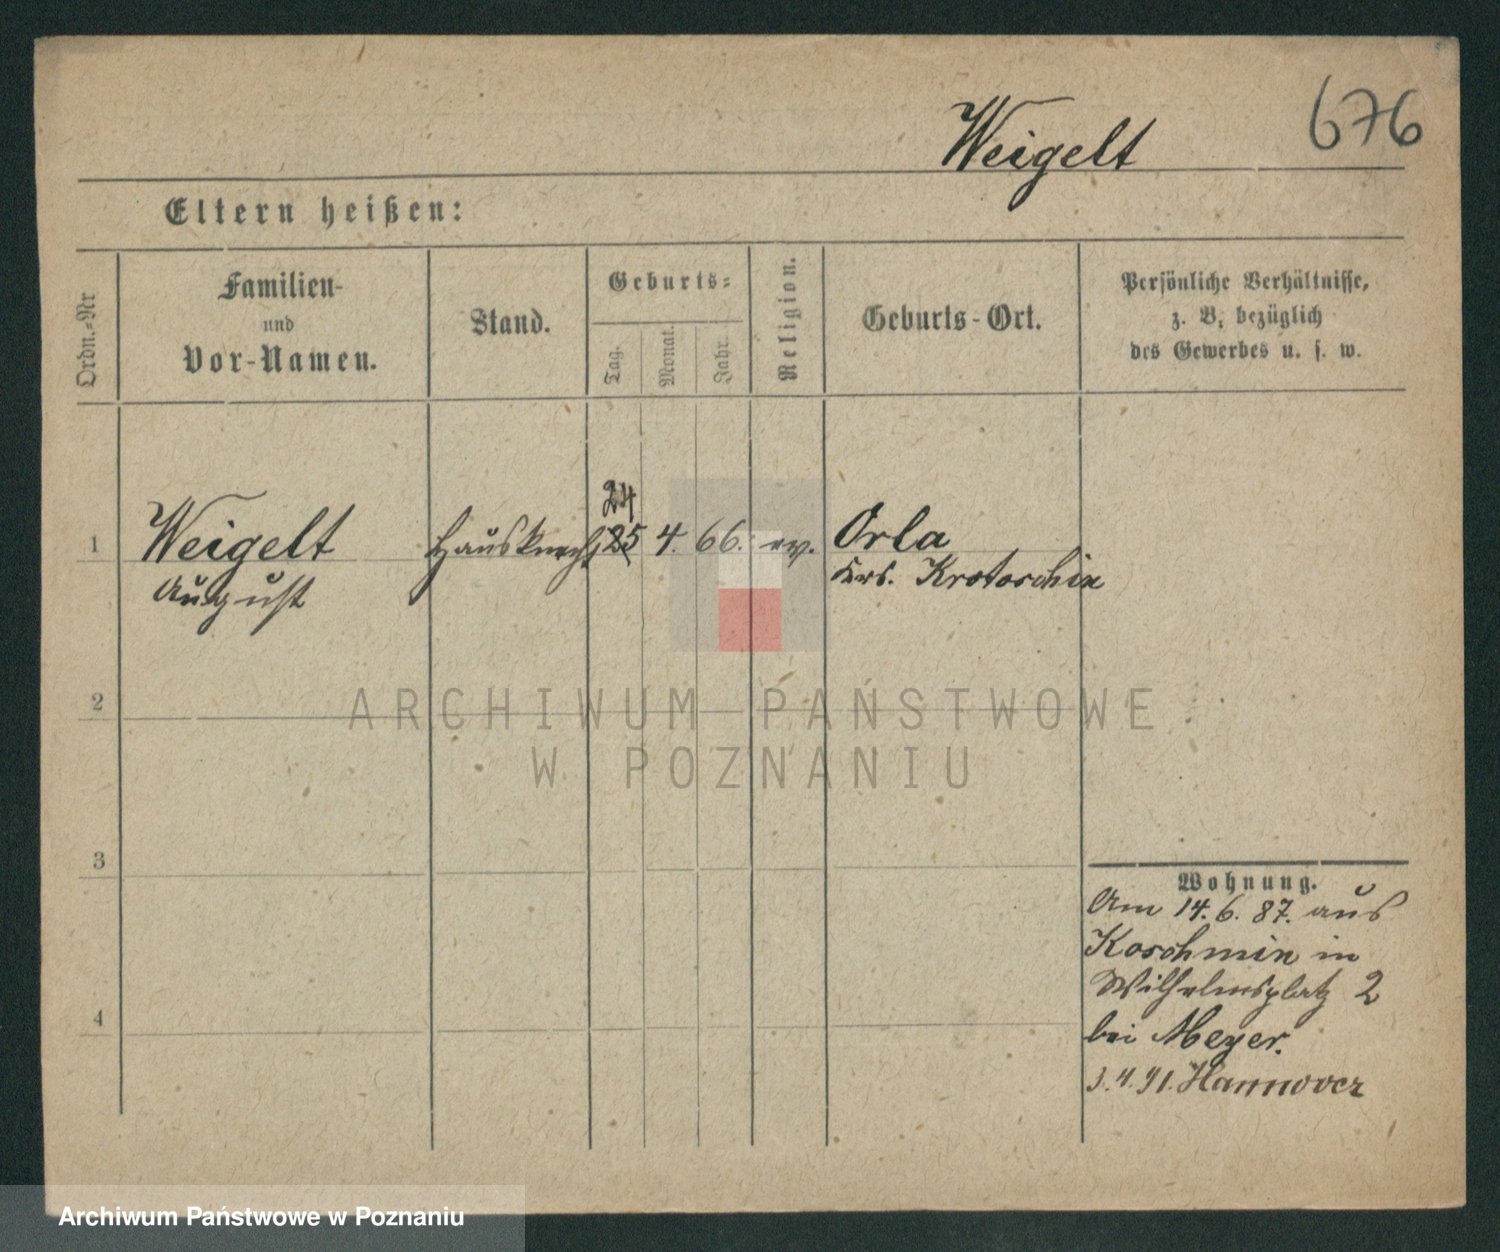 Weigelt
676
Eltern heißen:
Ordn.-Nr
Familien-
und
Vor-Namen.
Stand.
Geburts-
Tag.
Monat.
Jahr.
Religion.
Geburts-Ort.
Persönliche Verhältnisse,
z. B. bezüglich
des Gewerbes u. s. w.
24
1 Weigelt Hausknecht 25 4. 66. ev. Orla
August Krs. Krotoschin
2
ARCHIWUM PAŃSTWOWE
W POZNANIU
3
Wohnung.
Am 14. 6. 87. aus
Koschmin in
Wilhelmsplatz 2
4
bei Meyer.
3. 4. 91. Hannover
Archiwum Państwowe w Poznaniu